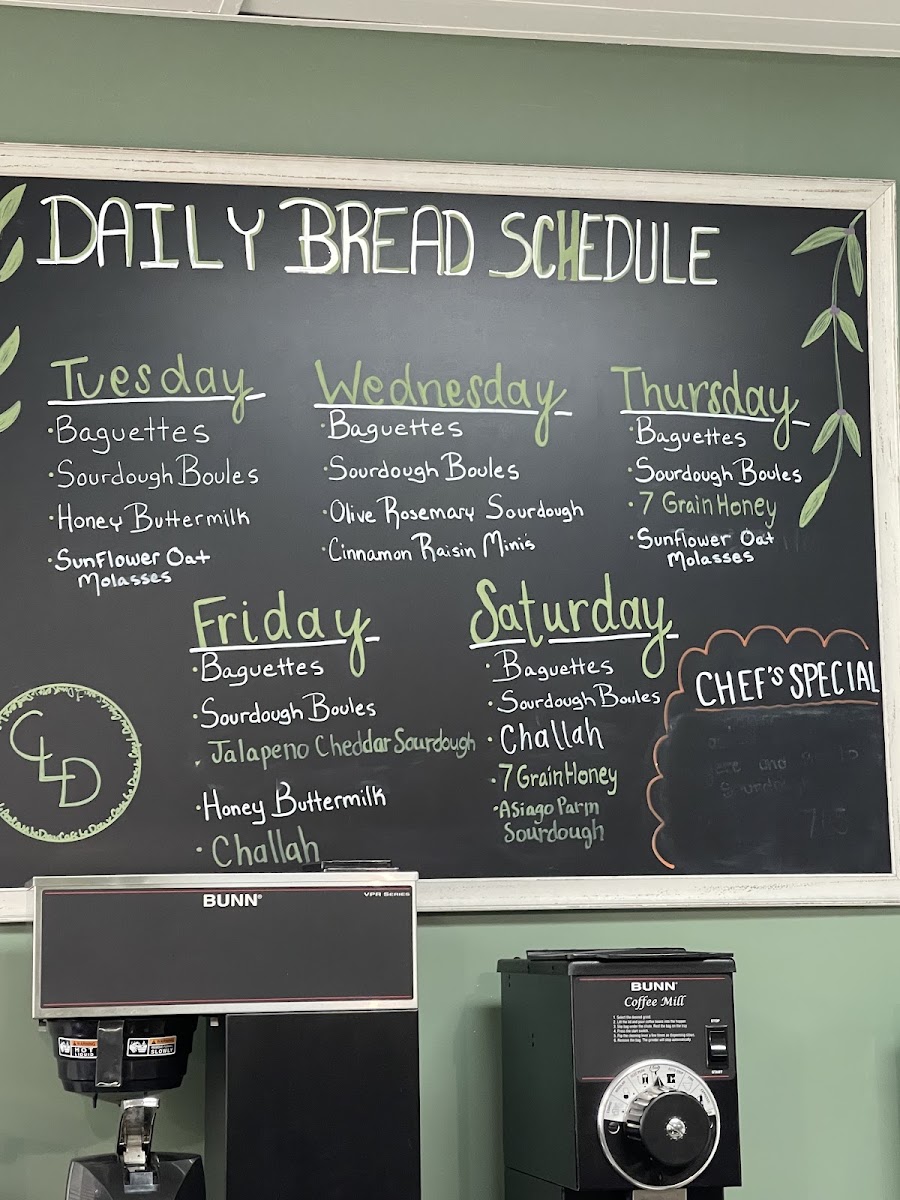 DAILY BREAD SCHEDULE
Tuesday
·Baguettes
·Sourdough Boules
·Honey Buttermilk
·Sunflower Oat
Molasses
Wednesday
·Baguettes
·Sourdough Boules
·Olive Rosemary Sourdough
·Cinnamon Raisin Minis
Thursday
·Baguettes
·Sourdough Boules
·7 Grain Honey
·Sunflower Oat
Molasses
Friday
·Baguettes
·Sourdough Boules
·Jalapeno Cheddar Sourdough
·Honey Buttermilk
·Challah
Saturday
·Baguettes
·Sourdough Boules
·Challah
·7 Grain Honey
·Asiago Parm
Sourdough
CHEF'S SPECIAL
CLD
BUNN®
VPR SERIES
WARNING
HOT
LIQUID
WARNING
SLOWLY
BUNN®
Coffee Mill
STOP
START